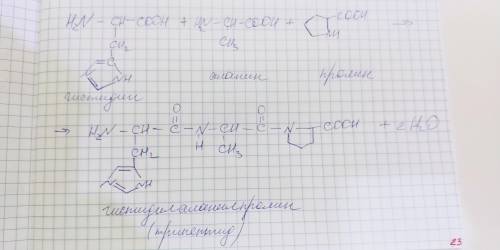 H₂N – CH – COOH + H₂N – CH – COOH + COOH →
CH₂ CH₃ NH
C
NH
гистидин аланин пролин
O O
→ H₂N – CH – C – N – CH – C – N COOH + 2H₂O
CH₂ H CH₃
NH
гистидилаланилпролин
(трипептид)
23